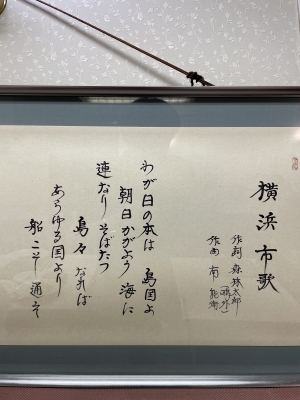 横浜市歌
作詞 森林太郎
(鴎外)
作曲 南能衛
わが日の本は 島国よ
朝日かがよう 海に
連なりそばだつ
島々なれば
あらゆる国より
船こそ通え